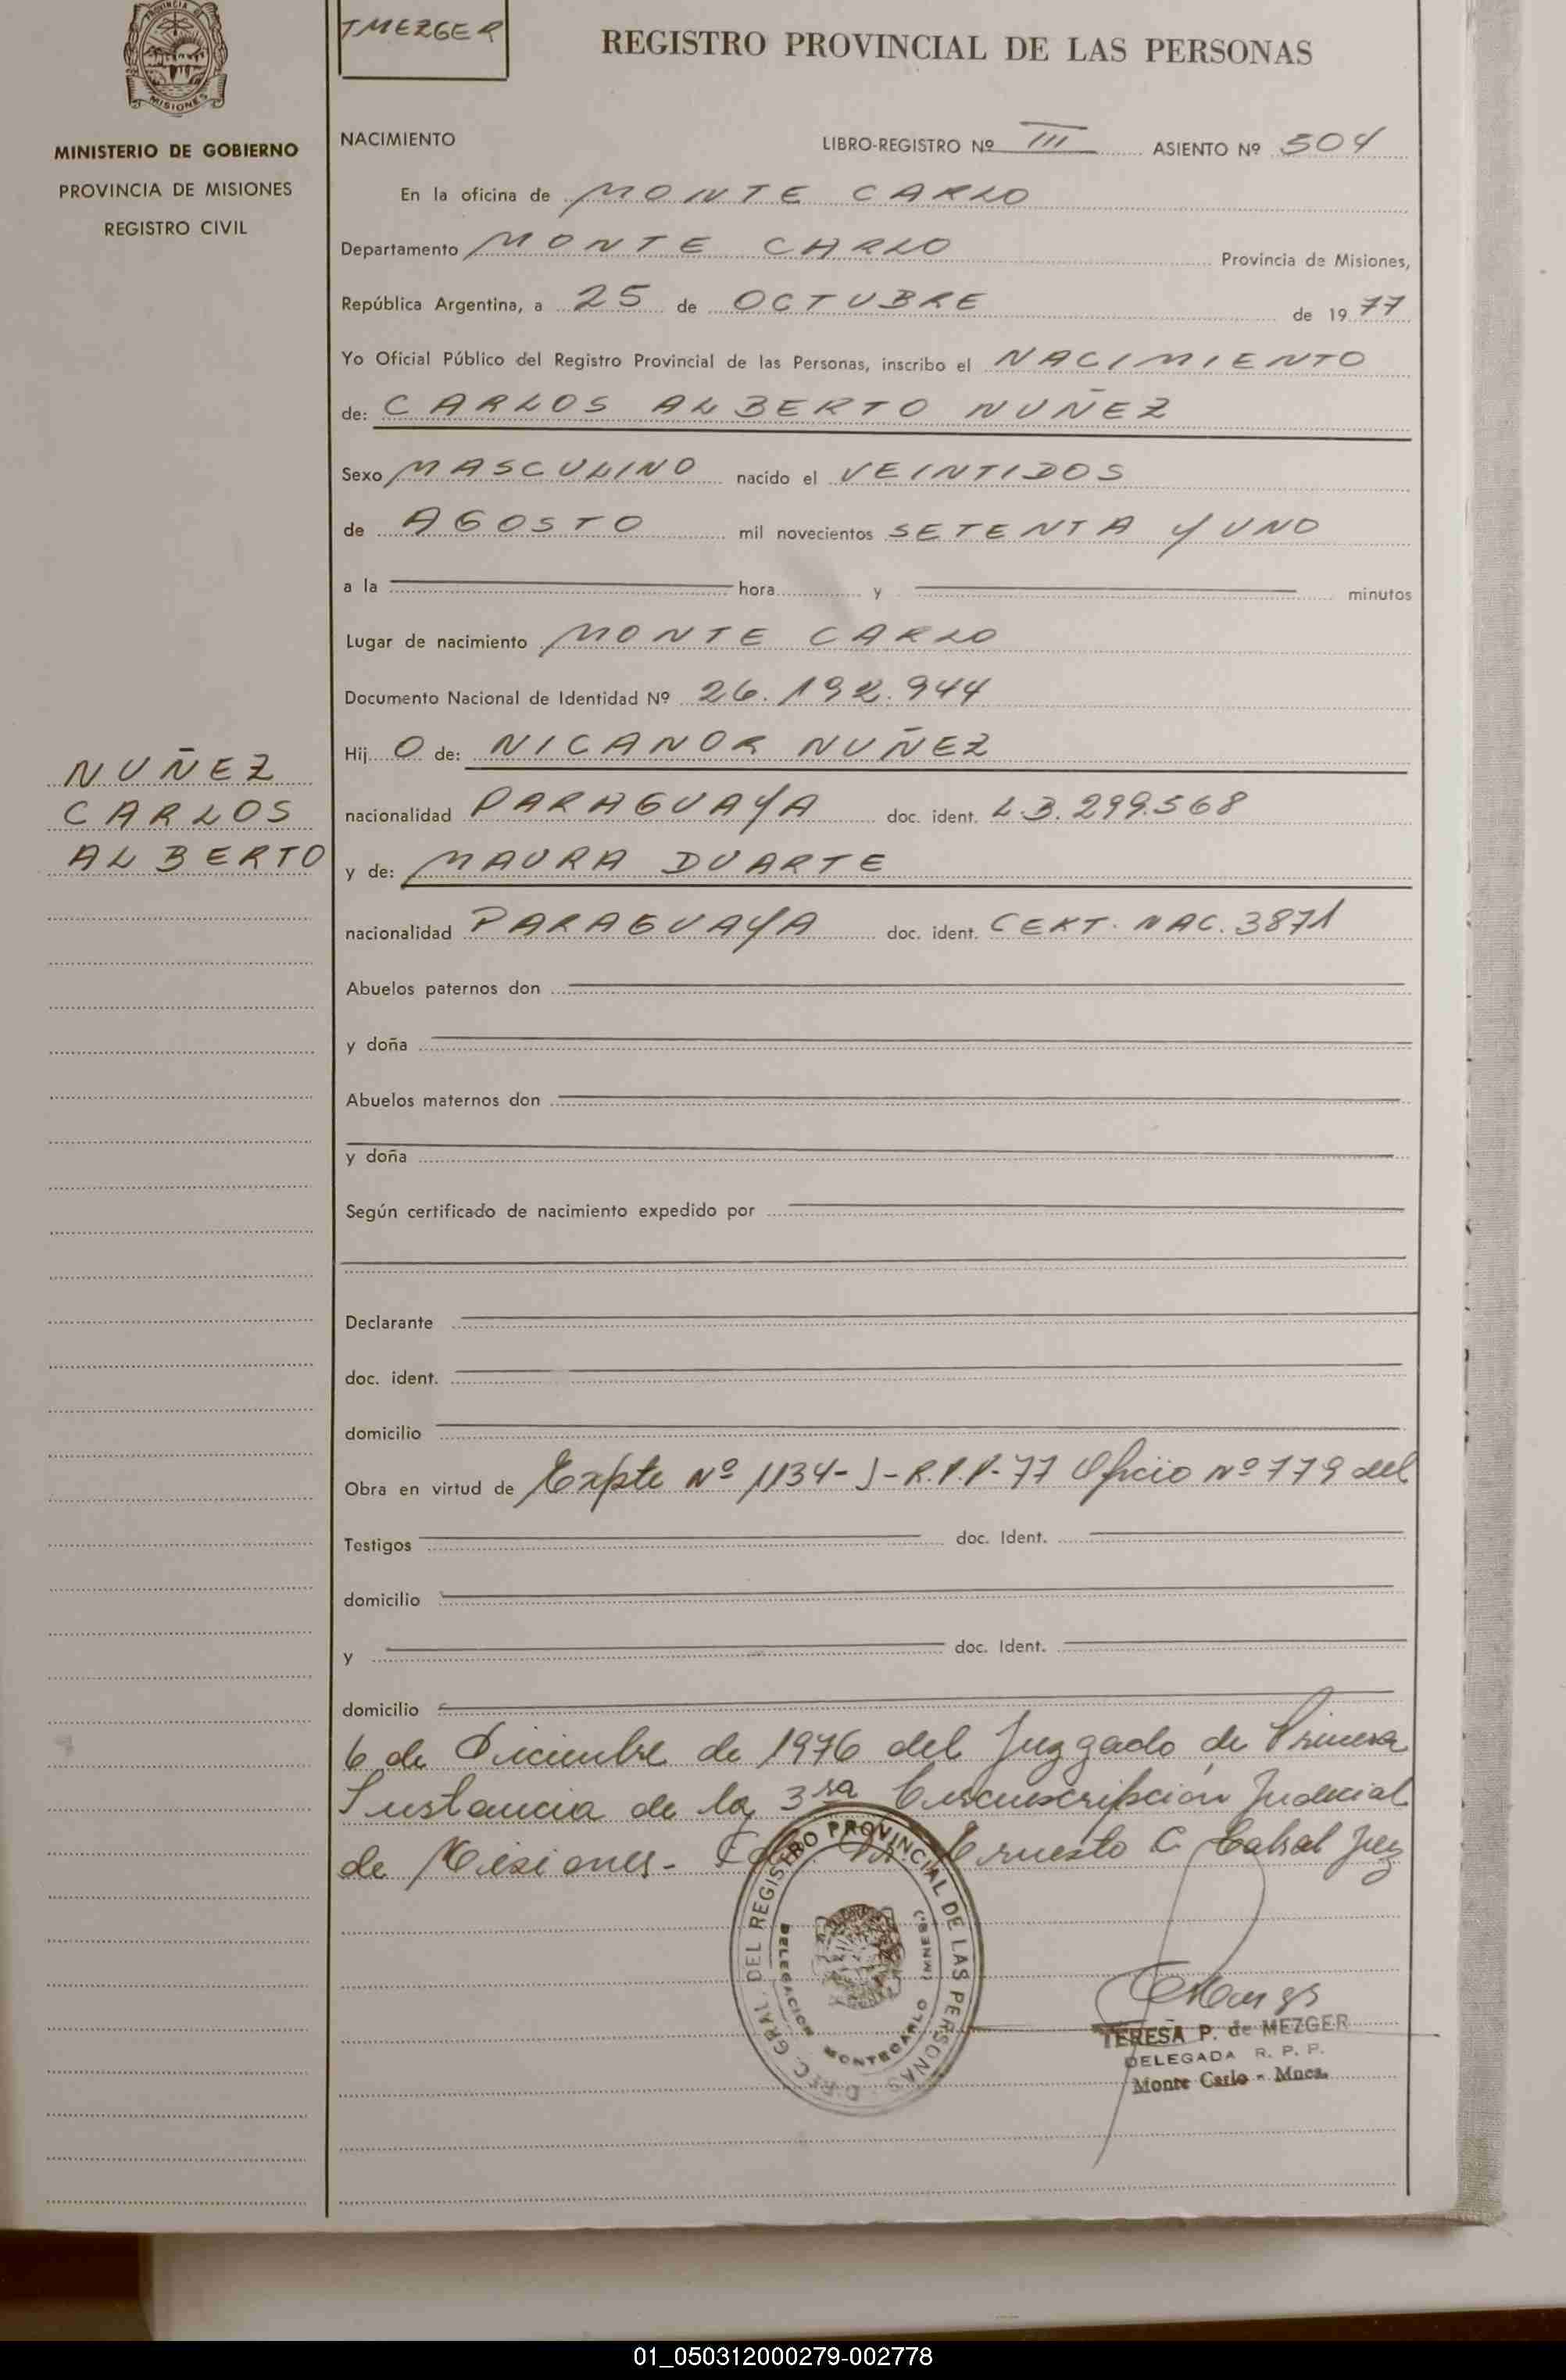 PROVINCIA DE
MISIONES
TMEZGER
REGISTRO PROVINCIAL DE LAS PERSONAS
MINISTERIO DE GOBIERNO
PROVINCIA DE MISIONES
REGISTRO CIVIL
NACIMIENTO LIBRO-REGISTRO Nº III ASIENTO Nº 504
En la oficina de MONTE CARLO
Departamento MONTE CARLO Provincia de Misiones,
República Argentina, a 25 de OCTUBRE de 1977
Yo Oficial Público del Registro Provincial de las Personas, inscribo el NACIMIENTO
de: CARLOS ALBERTO NUÑEZ
Sexo MASCULINO nacido el VEINTIDOS
de AGOSTO mil novecientos SETENTA Y UNO
a la hora y minutos
Lugar de nacimiento MONTE CARLO
Documento Nacional de Identidad Nº 26.192.944
Hij O de: NICANOR NUÑEZ
NUÑEZ
CARLOS
ALBERTO
nacionalidad PARAGUAYA doc. ident. L.3.299.568
y de: MAURA DUARTE
nacionalidad PARAGUAYA doc. ident. CERT. NAC. 3871
Abuelos paternos don
y doña
Abuelos maternos don
y doña
Según certificado de nacimiento expedido por
Declarante
doc. ident.
domicilio
Obra en virtud de Expte Nº 1134-J-R.P.P-77 Oficio Nº 779 del
Testigos doc. Ident.
domicilio
y doc. Ident.
domicilio
6 de Diciembre de 1976 del Juzgado de Primera
Instancia de la 3ra Circunscripción Judicial
de Misiones- Ernesto C. Cabral Juez
DIREC. GRAL. DEL REGISTRO PROVINCIAL DE LAS PERSONAS
DELEGACION MONTECARLO (MNES.)
TERESA P. de MEZGER
DELEGADA R. P. P.
Monte Carlo - Mnes.
01_050312000279-002778